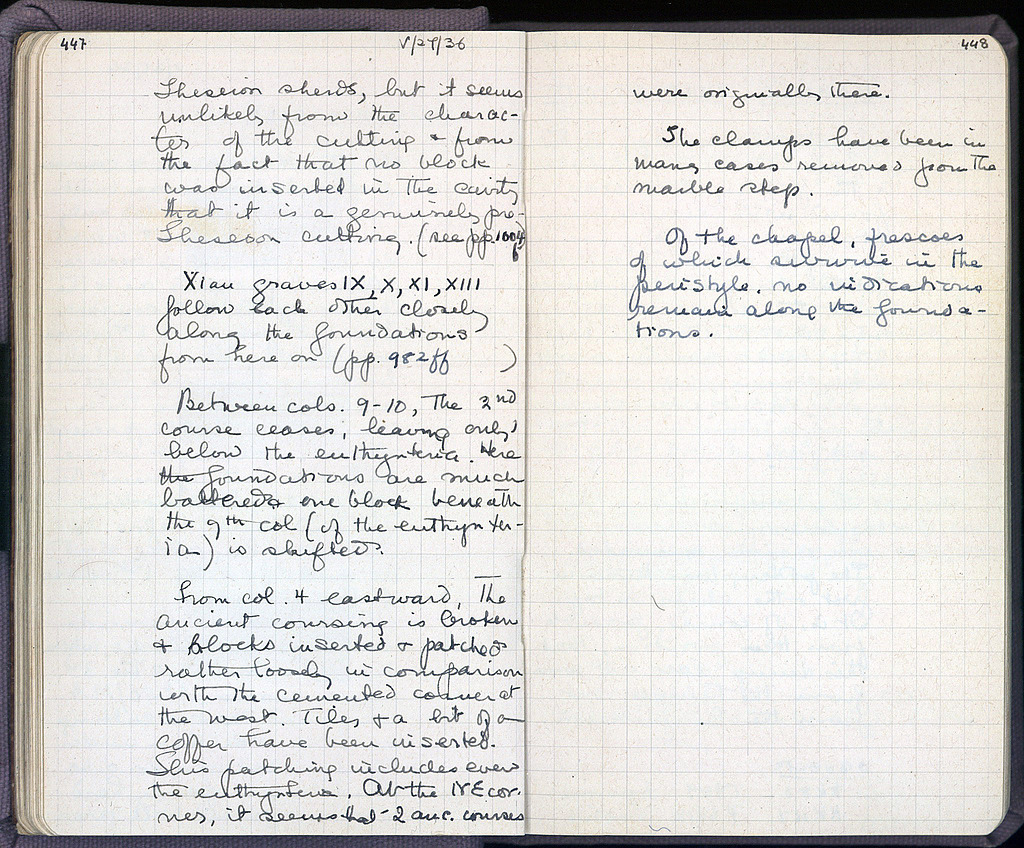 447
V/27/36
Theseion sherds, but it seems
unlikely from the charac-
ter of the cutting & from
the fact that no block
was inserted in the cavity
that it is a genuinely pre-
Theseion cutting. (see pp. 1004
Xian graves IX, X, XI, XIII
follow each other closely
along the foundations
from here on (pp. 982ff )
Between cols. 9-10, the 2nd
course ceases, leaving only 1
below the euthynteria. Here
the foundations are much
battered & one block beneath
the 9th col (of the euthynter-
ia) is shifted.
From col. 4 eastward, the
ancient coursing is broken
& blocks inserted & patched
rather loosely in comparison
with the cemented corner at
the west. Tiles & a bit of a
coffer have been inserted.
This patching includes even
the euthynteria. At the NE cor-
ner, it seems that 2 anc. courses
448
were originally there.
The clamps have been in
many cases removed from the
marble step.
Of the chapel, frescoes
of which survive in the
peristyle, no indications
remain along the founda-
tions.